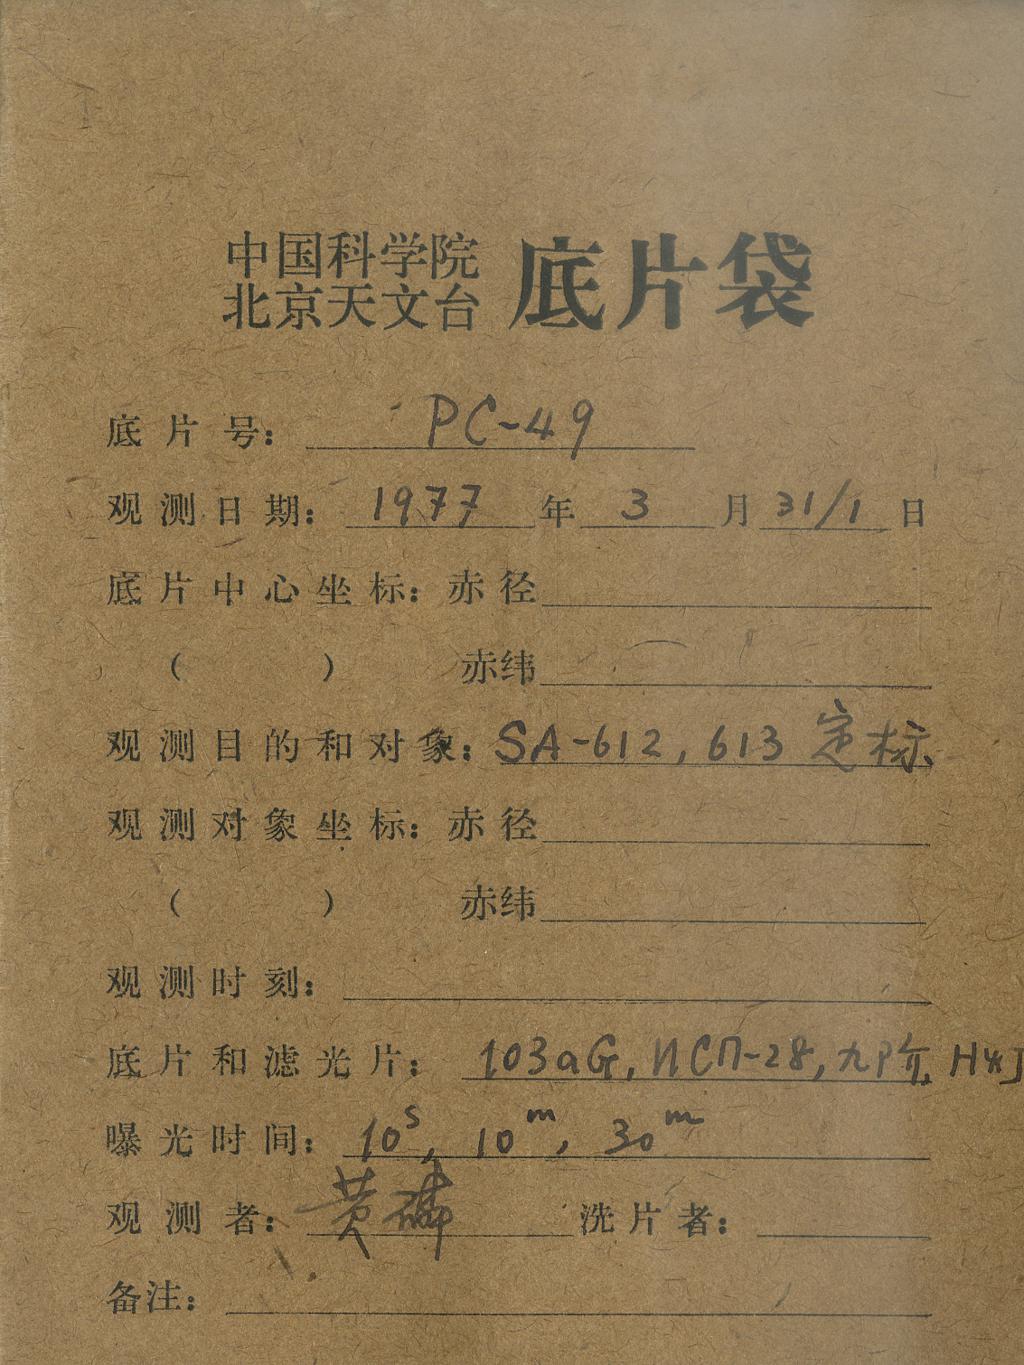 中国科学院
北京天文台
底片袋
底片号：PC-49
观测日期：1977年3月31/1日
底片中心坐标：赤径
（ ） 赤纬
观测目的和对象：SA-612, 613 定标
观测对象坐标：赤径
（ ） 赤纬
观测时刻：
底片和滤光片：103aG, ИСП-28, 九阶
曝光时间：10s, 10m, 30m
观测者：黄磷 洗片者：
备注：